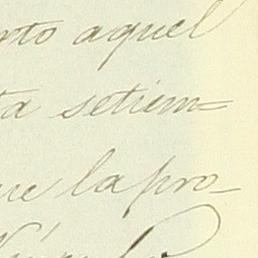 nto aquel
ta setiem=
ue la pro-